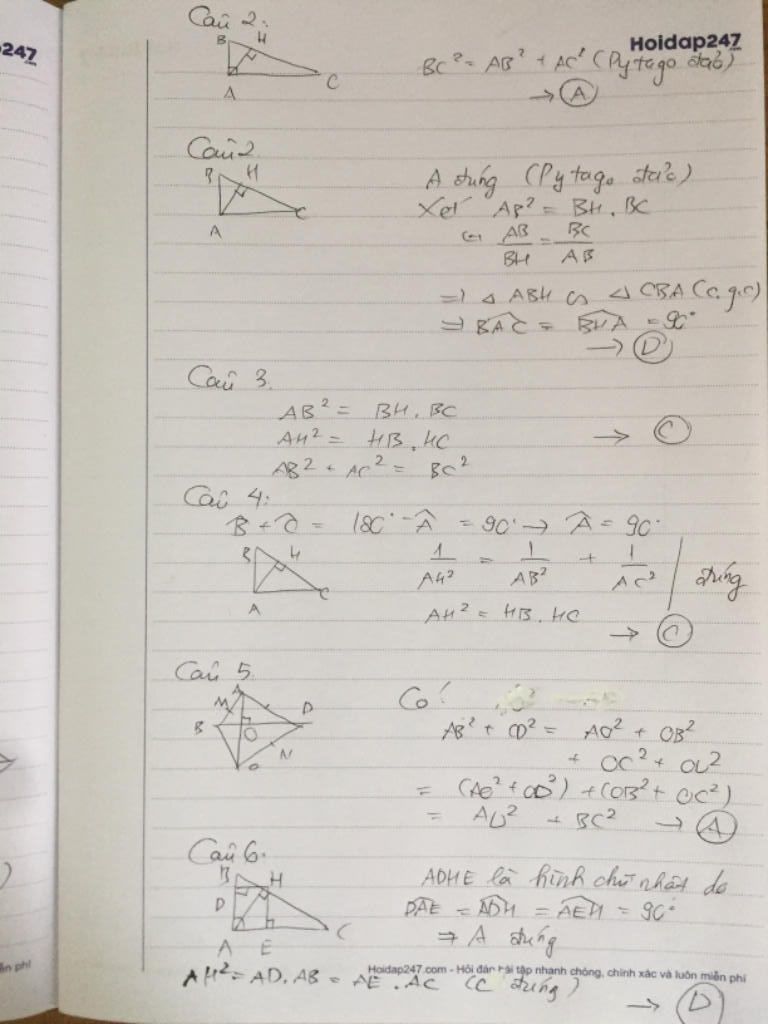 247
Hoidap247
.com
Câu 2:
B H
A C
BC² = AB² + AC² (Pytago đảo)
→ A
Câu 2
B H
A C
A đúng (Pytago đảo)
Xét AB² = BH . BC
AB/BH = BC/AB
=> Δ ABH ∽ Δ CBA (c.g.c)
=> BAC = BHA = 90°
→ D
Câu 3.
AB² = BH . BC
AH² = HB . HC → C
AB² + AC² = BC²
Câu 4:
B + C = 180° - A = 90° → A = 90°
B H
A C
1/AH² = 1/AB² + 1/AC²
AH² = HB . HC
đúng
→ C
Câu 5.
A
M D
B O
N
C
Có:
AB² + CD² = AO² + OB²
+ OC² + OD²
= (AO² + OD²) + (OB² + OC²)
= AD² + BC² → A
Câu 6.
B H
D
A E C
ADHE là hình chữ nhật do
DAE = ADH = AEH = 90°
=> A đúng
ễn phí
Hoidap247.com - Hỏi đáp bài tập nhanh chóng, chính xác và luôn miễn phí
AH² = AD . AB = AE . AC (C đúng)
→ D